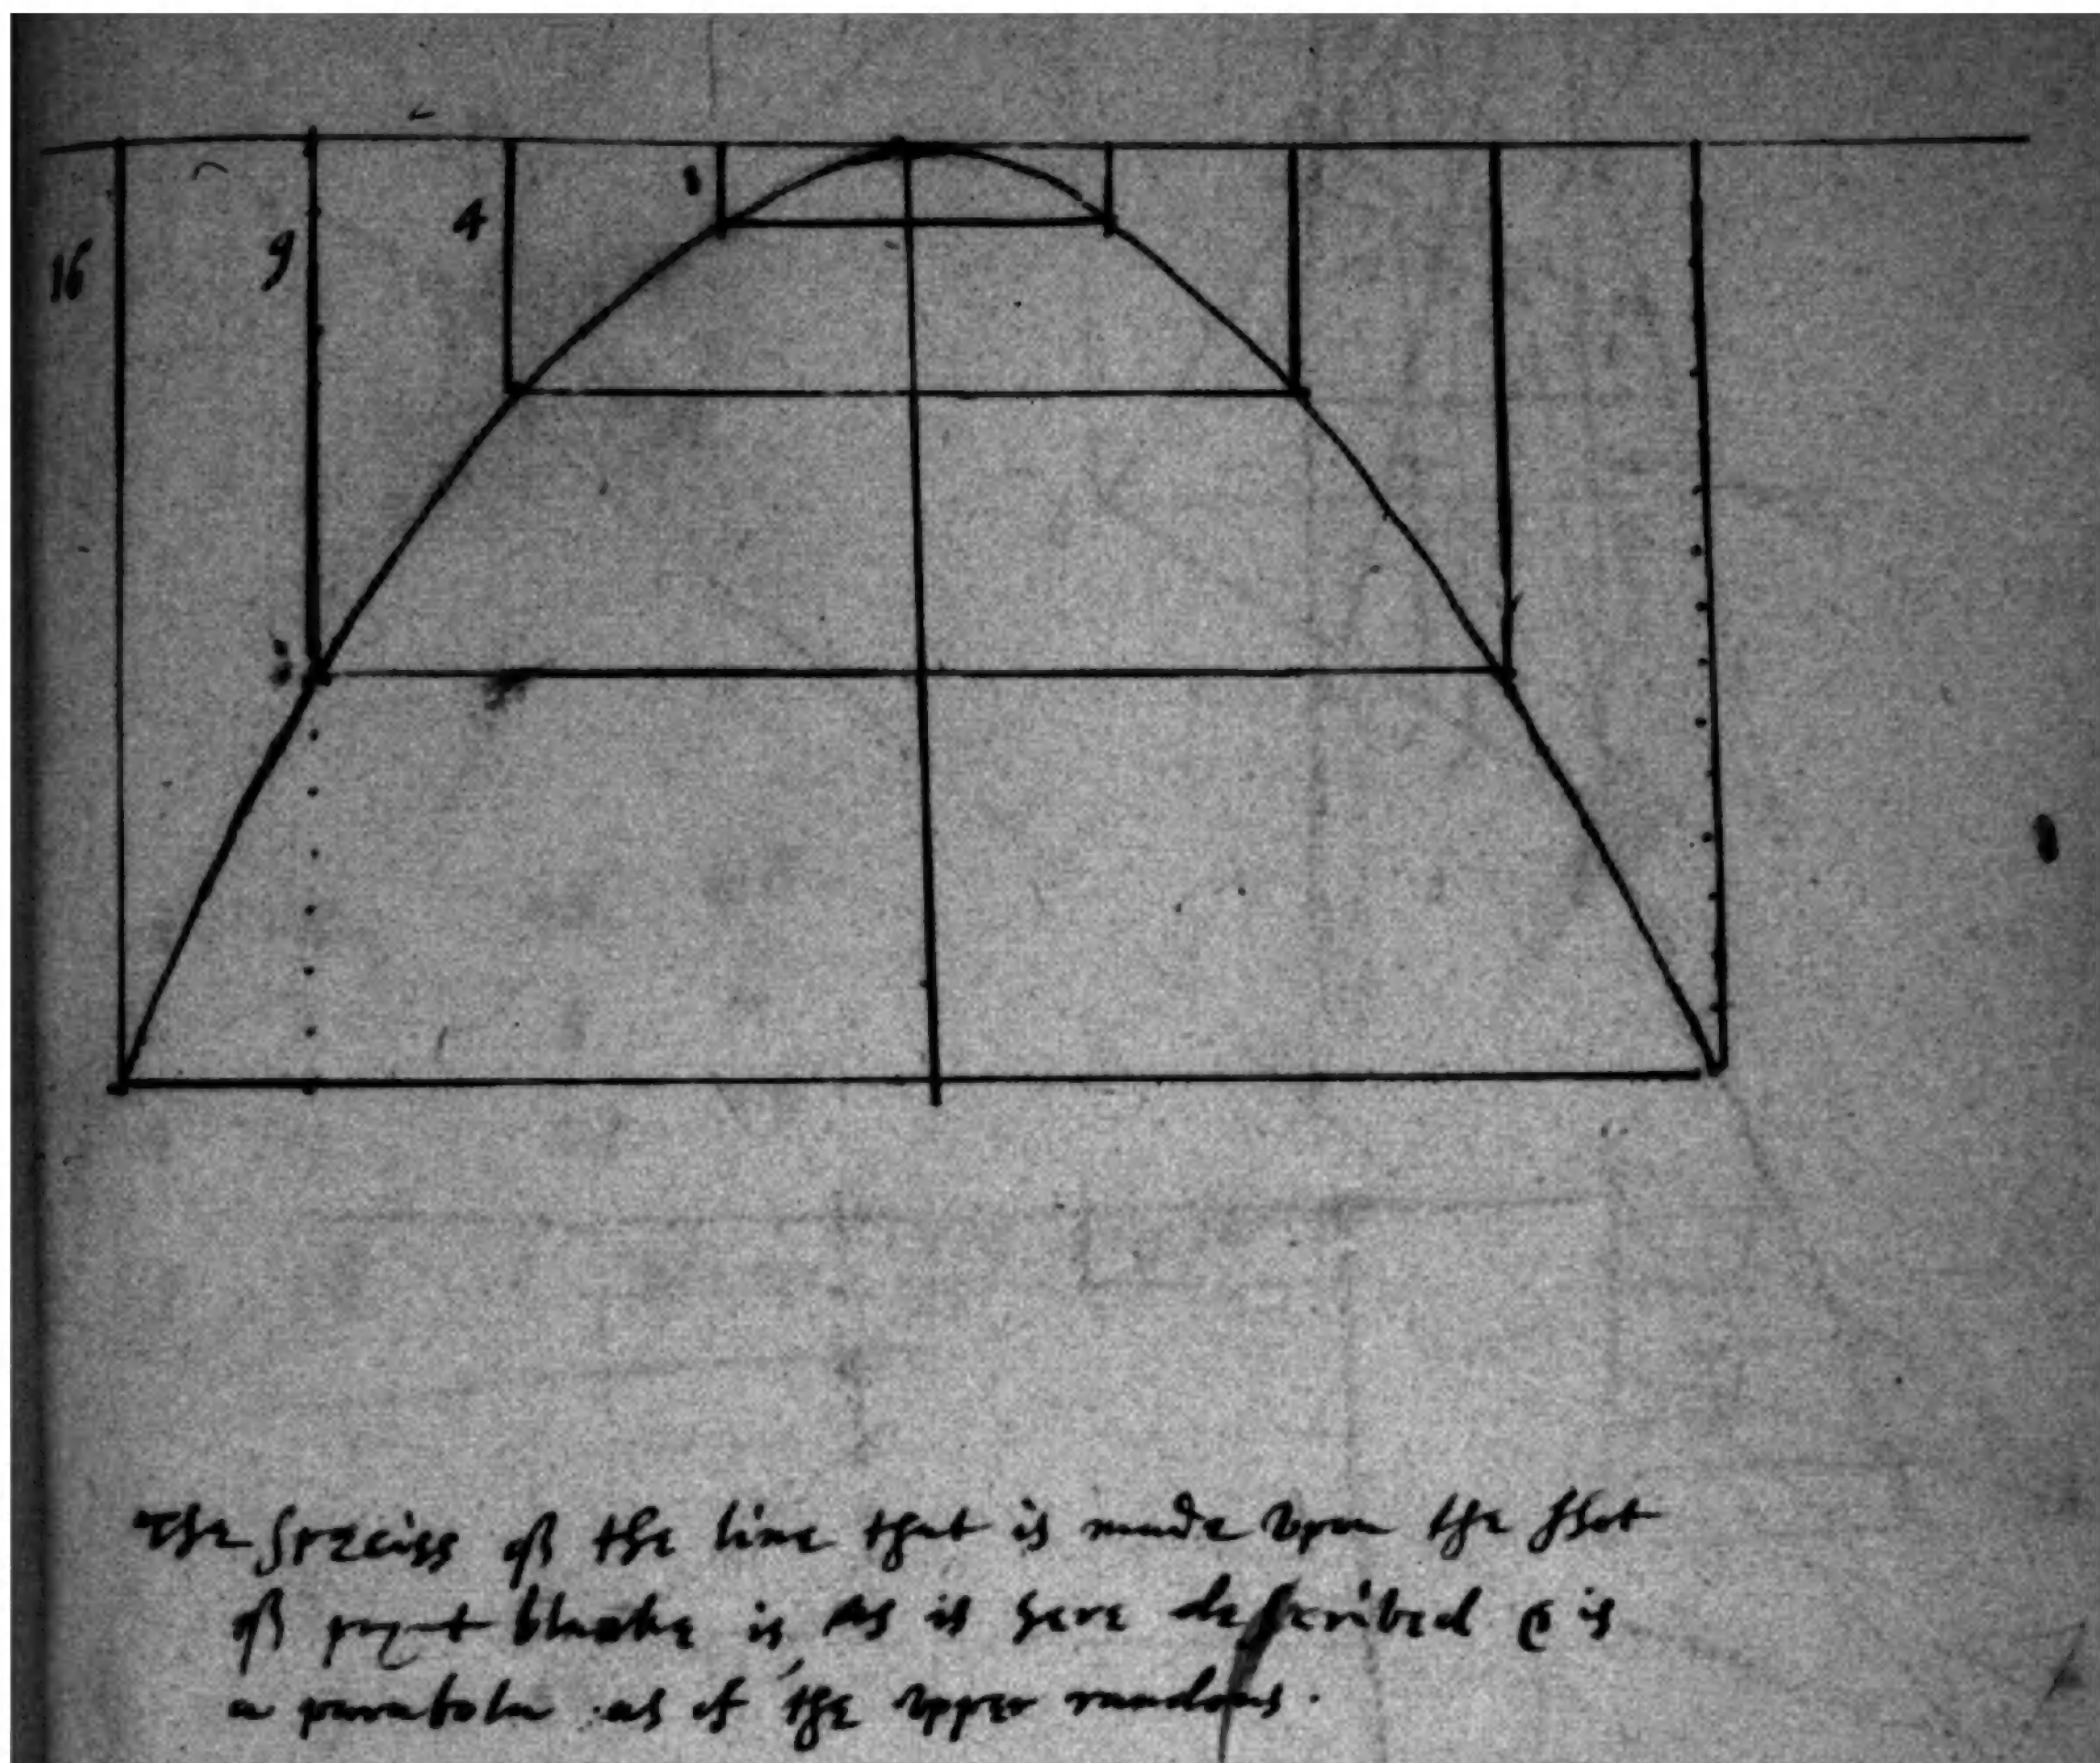 16
9
4
1
The speciess of the line that is made vpon the shot
of poynt blanke is as is here described & is
a parabola as of the vpper randons.